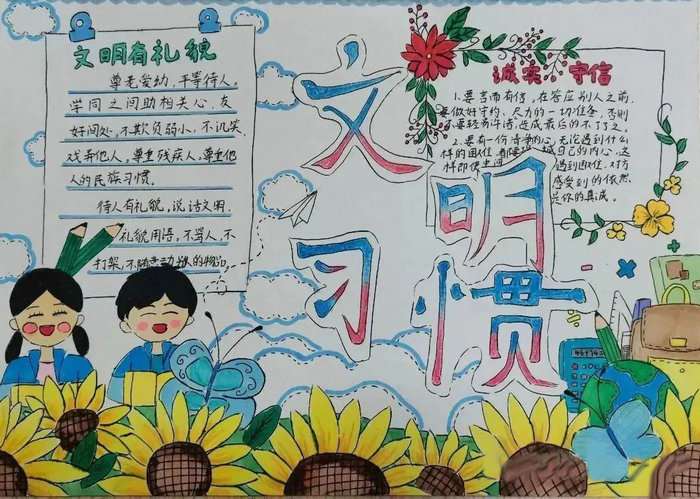 文明有礼貌
尊老爱幼，平等待人，
学同之间助相关心，友
好间处，不欺负弱小，不讥笑、
戏弄他人，尊重残疾人，尊重他
人的民族习惯。
待人有礼貌，说话文明，
礼貌用语，不骂人，不
打架，不随
文明
习惯
诚实 守信
1.要言而有信，在答应别人之前，
要做好守约、尽力的一切准备，否则
不要轻易许诺，造成最后的不了了之。
2.要有一份诗挚的心，无论遇到什么
样的困难，都要
样即使中间
遇到困难，对方
感受到的依然
是你的真诚。